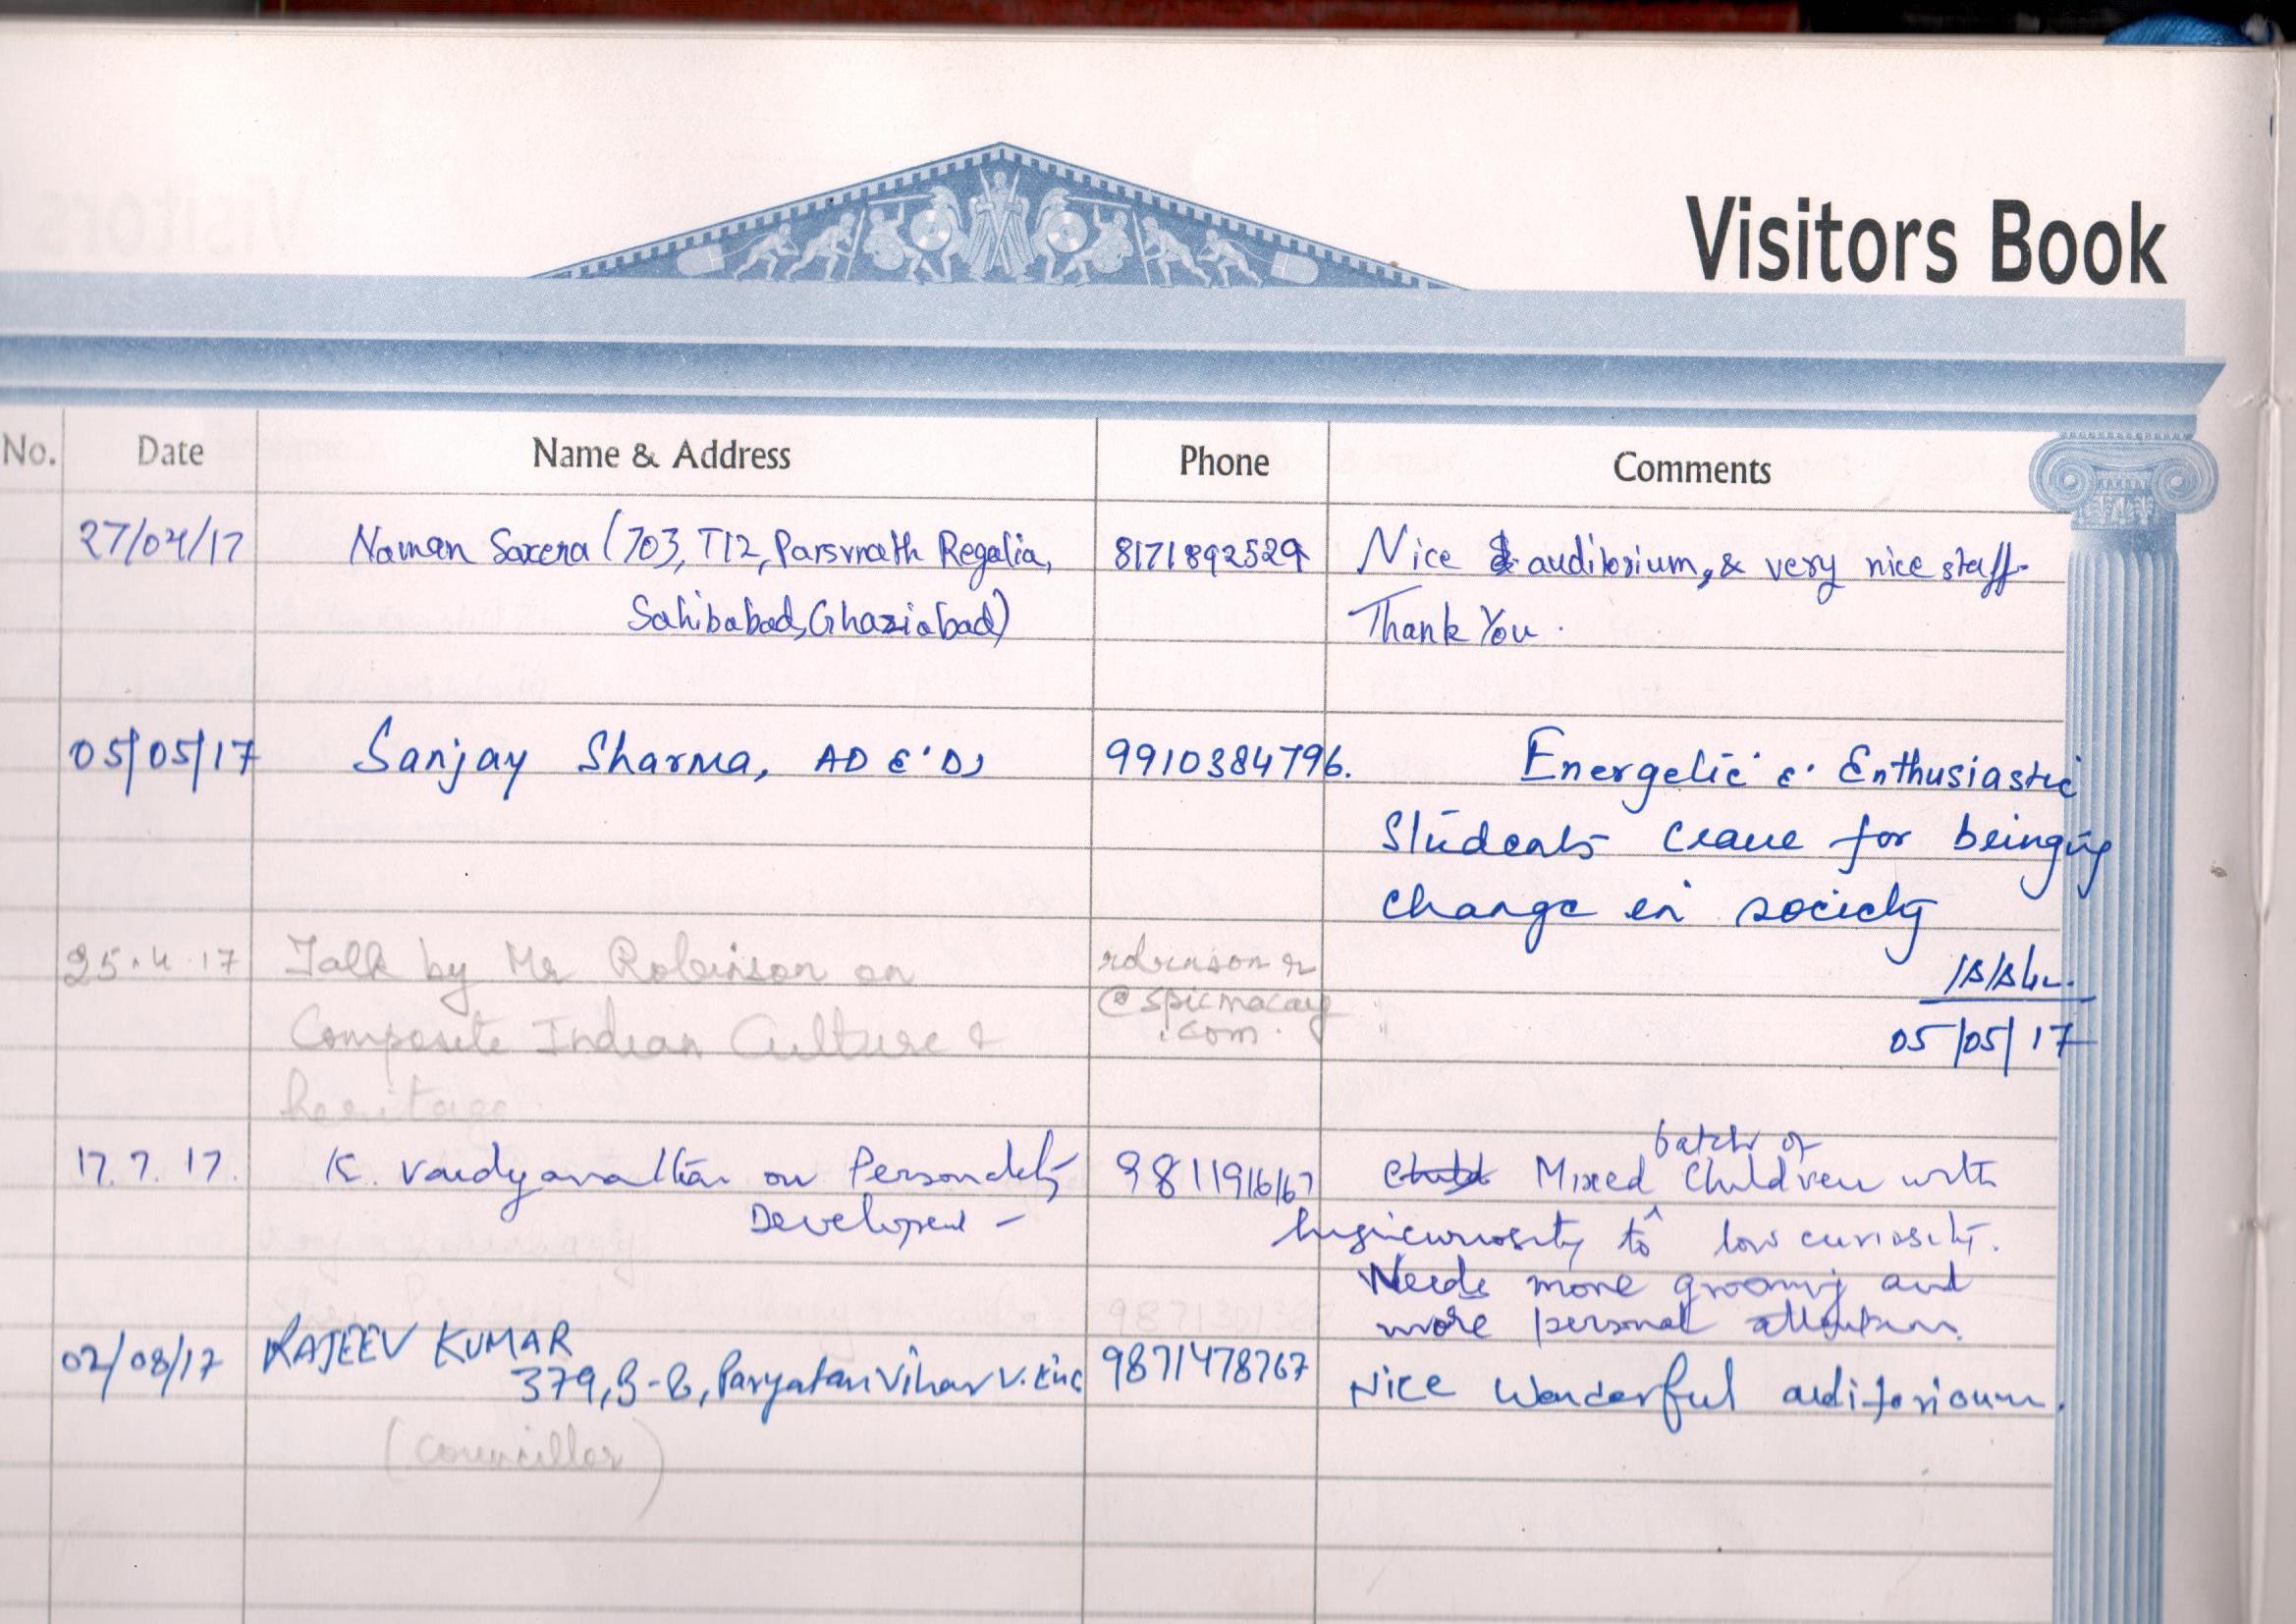 Visitors Book
No. Date Name & Address Phone Comments
27/04/17 Naman Saxena (703, T12, Parsvnath Regalia, 8171892529 Nice auditorium, & very nice staff.
Sahibabad, Ghaziabad) Thank You.
05/05/17 Sanjay Sharma, AD E & D, 9910384796. Energetic & Enthusiastic
Students crave for bringing
change in society
25.4.17 Talk by Mr Robinson on robinson
@spicmacay
Composite Indian Culture & .com.
05/05/17
heritage
batch of
17.7.17. K. Vaidyanathan on Personality 9811916167 Child Mixed Children with
Development - high curiosity to low curiosity.
Needs more grooming and
more personal attention.
02/08/17 RAJEEV KUMAR
379, B-6, Paryatan Vihar V. Enc 9871478767 Nice Wonderful auditorioum.
(Councillor)